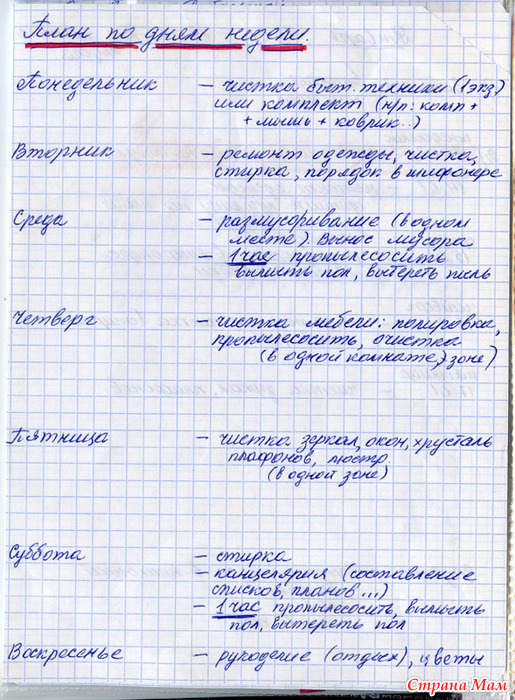 План по дням недели.
Понедельник – чистка быт. техники (1 экз)
или комплект (н/п: комп +
+ мышь + коврик..)
Вторник – ремонт одежды, чистка,
стирка, порядок в шифонере
Среда – размусоривание (в одном
месте). Вынос мусора
– 1 час пропылесосить
вымыть пол, вытереть пыль
Четверг – чистка мебели: полировка,
пропылесосить, очистка
(в одной комнате, зоне)
Пятница – чистка зеркал, окон, хрусталь
плафонов, люстр
(в одной зоне)
Суббота – стирка
– канцелярия (составление
списков, планов...)
– 1 час пропылесосить, вымыть
пол, вытереть пол
Воскресенье – рукоделие (отдых), цветы
Страна Мам